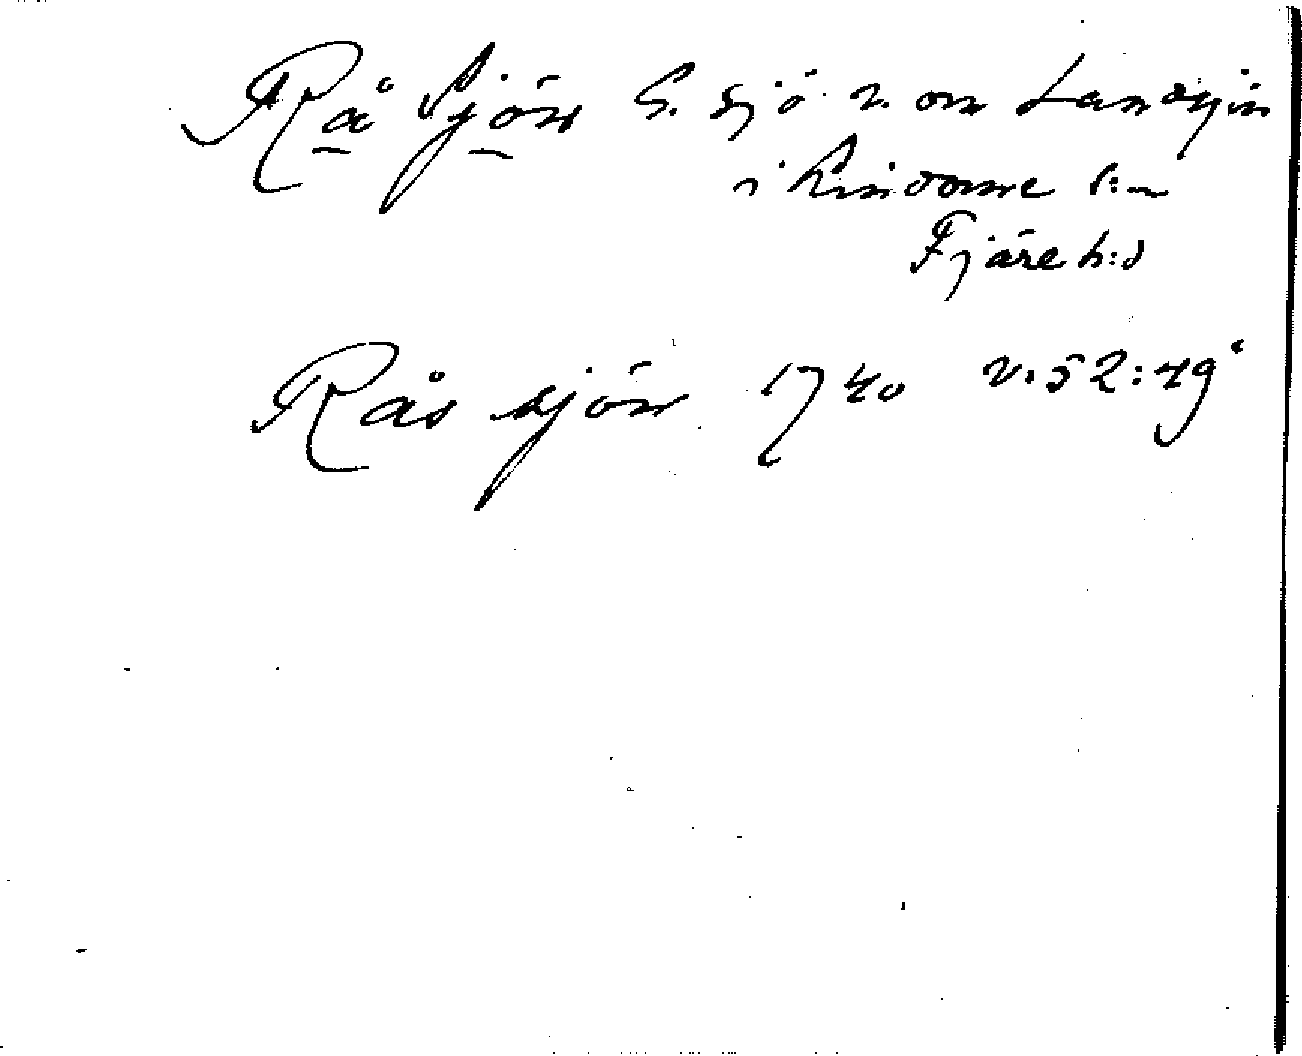 Råsjön G. sjö n. om Landsjön
i Lindome s:n
Fjäre h:d
Råssjön 1740 v. 52:49